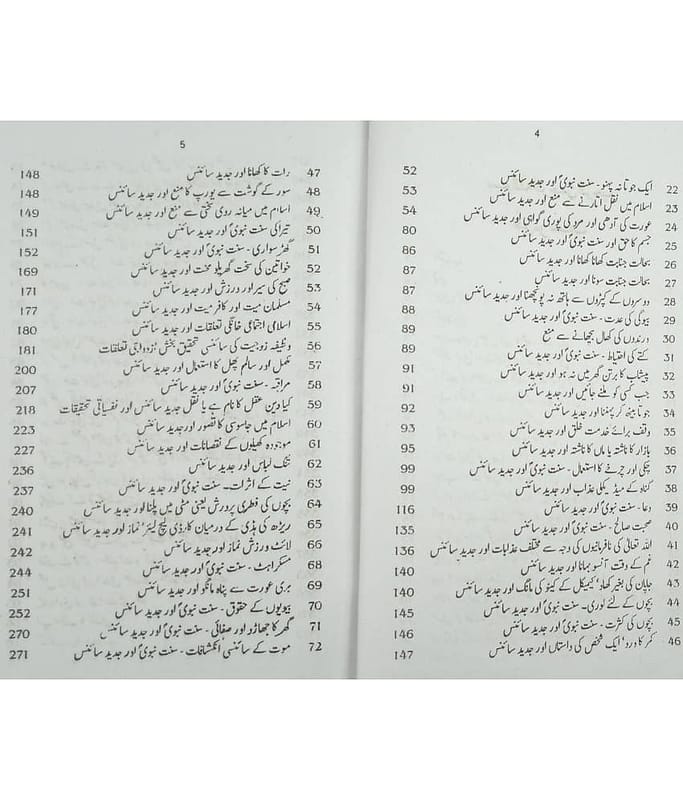 4
22 ایک جوتا نہ پہنو - سنت نبویؐ اور جدید سائنس 52
23 اسلام میں نقل اتارنے سے منع اور جدید سائنس 53
24 عورت کی آدھی اور مرد کی پوری گواہی اور جدید سائنس 54
25 جسم کا حق اور سنت نبویؐ اور جدید سائنس 80
26 بحالت جنابت کھانا کھانا اور جدید سائنس 86
27 بحالت جنابت سونا اور سنت نبویؐ 87
28 دوسروں کے کپڑوں سے ہاتھ نہ پونچھنا اور جدید سائنس 87
29 بیوگی کی عدت - سنت نبویؐ اور جدید سائنس 88
30 درندوں کی کھال بچھانے سے منع 89
31 کتے کی احتیاط - سنت نبویؐ اور جدید سائنس 89
32 پیشاب کا برتن گھر میں نہ ہو اور جدید سائنس 91
33 جب کسی کو ملنے جائیں اور جدید سائنس 91
34 جوتا بیٹھ کر پہننا اور جدید سائنس 92
35 وقف برائے خدمت خلق اور جدید سائنس 93
36 بازار کا ناشتہ یا ماں کا ناشتہ اور جدید سائنس 95
37 چکی اور چرخے کا استعمال - سنت نبویؐ اور جدید سائنس 99
38 گناہ کے میڈیکلی عذاب اور جدید سائنس 99
39 دعا - سنت نبویؐ اور جدید سائنس 116
40 صحبت صالح - سنت نبویؐ اور جدید سائنس 135
41 اللہ تعالیٰ کی نافرمانیوں کی وجہ سے مختلف عذابات اور جدید سائنس 136
42 غم کے وقت آنسو بہانا اور جدید سائنس 140
43 جاپان کی بغیر کھاد' کیمیکل کے کینو کی مانگ اور جدید سائنس 140
44 بچوں کے لئے لوری - سنت نبویؐ اور جدید سائنس 145
45 بچوں کی کثرت - سنت نبویؐ اور جدید سائنس 146
46 کمر کا درد' ایک شخص کی داستاں اور جدید سائنس 147
5
47 رات کا کھانا اور جدید سائنس 148
48 سور کے گوشت سے یورپ کا منع اور جدید سائنس 148
49 اسلام میں میانہ روی سختی سے منع اور جدید سائنس 149
50 تیراکی سنت نبویؐ اور جدید سائنس 151
51 گھڑ سواری - سنت نبویؐ اور جدید سائنس 152
52 خواتین کی سخت گھریلو محنت اور جدید سائنس 169
53 صبح کی سیر اور ورزش اور جدید سائنس 171
54 مسلمان میت اور کافر میت اور جدید سائنس 177
55 اسلامی اجتماعی خانگی تعلقات اور جدید سائنس 180
56 وظیفہ زوجیت کی سائنسی تحقیق بخش' ازدواجی تعلقات 181
57 مکمل اور سالم پھل کا استعمال اور جدید سائنس 200
58 مراقبہ - سنت نبویؐ اور جدید سائنس 207
59 کیا دین عقل کا نام ہے یا نقل جدید سائنس اور نفسیاتی تحقیقات 218
60 اسلام میں جاسوسی کا تصور اور جدید سائنس 223
61 موجودہ کھیلوں کے نقصانات اور جدید سائنس 227
62 تنگ لباس اور جدید سائنس 236
63 نیت کے اثرات - سنت نبویؐ اور جدید سائنس 237
64 بچوں کی فطری پرورش یعنی مٹی میں پلنا اور جدید سائنس 240
65 ریڑھ کی ہڈی کے درمیان کارڈی لیج لیئر' نماز اور جدید سائنس 241
66 لائٹ ورزش نماز اور جدید سائنس 242
68 مسکراہٹ - سنت نبویؐ اور جدید سائنس 244
69 بری عورت سے پناہ مانگو اور جدید سائنس 251
70 بیویوں کے حقوق - سنت نبویؐ اور جدید سائنس 252
71 گھر کا جھاڑو اور صفائی - سنت نبویؐ اور جدید سائنس 270
72 موت کے سائنسی انکشافات - سنت نبویؐ اور جدید سائنس 271